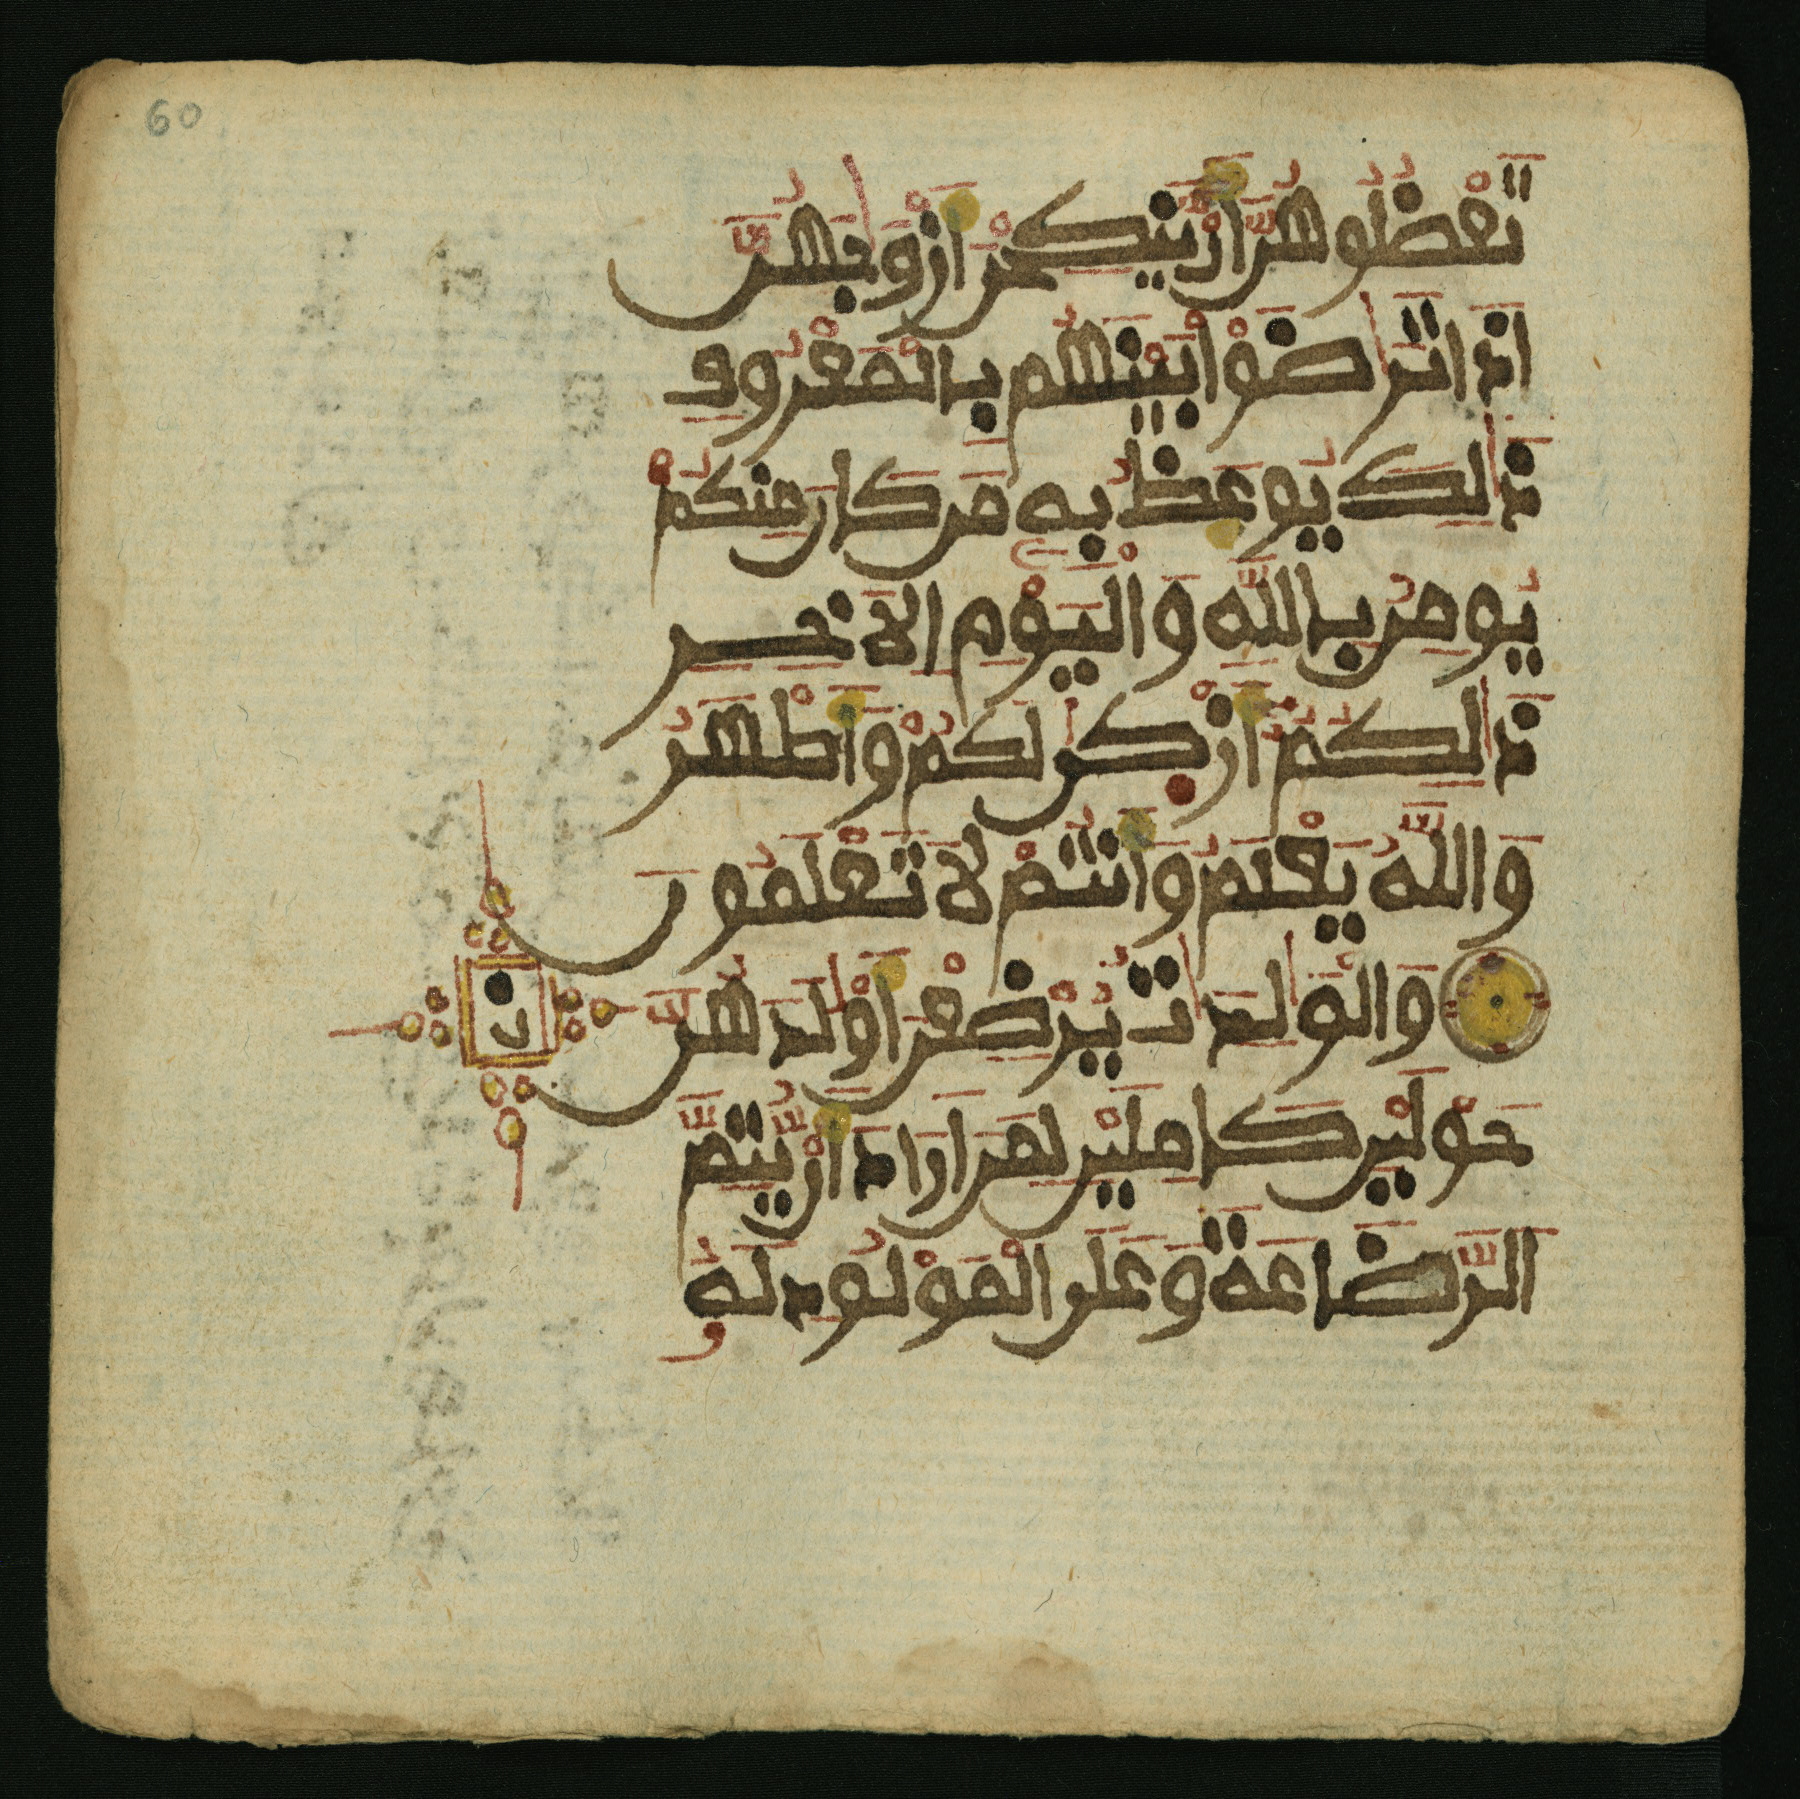 60
تَعْضُلُوهُنَّ أَنْ يَّنكِحْنَ أَزْوَٰجَهُنَّ
إِذَا تَرَٰضَوْا بَيْنَهُم بِالْمَعْرُوفِ
ذَٰلِكَ يُوعَظُ بِهِ مَن كَانَ مِنكُمْ
يُومِنُ بِاللَّهِ وَالْيَوْمِ الَاخِرِ
ذَٰلِكُمُ أَزْكَىٰ لَكُمْ وَأَطْهَرُ
وَاللَّهُ يَعْلَمُ وَأَنتُمْ لَا تَعْلَمُونَ
وَالْوَٰلِدَٰتُ يُرْضِعْنَ أَوْلَٰدَهُنَّ
ن
حَوْلَيْنِ كَامِلَيْنِ لِمَنَ ارَادَ أَنْ يُّتِمَّ
الرَّضَاعَةَ وَعَلَى الْمَوْلُودِ لَهُ